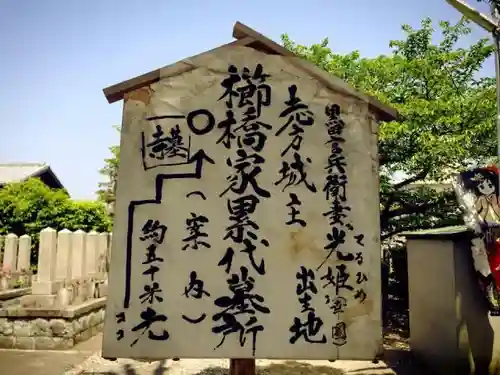 黒田官兵衛妻光姫(幸圓)
てるひめ
出生地
志方城主
櫛橋家累代墓所
(案内)
約五十米先